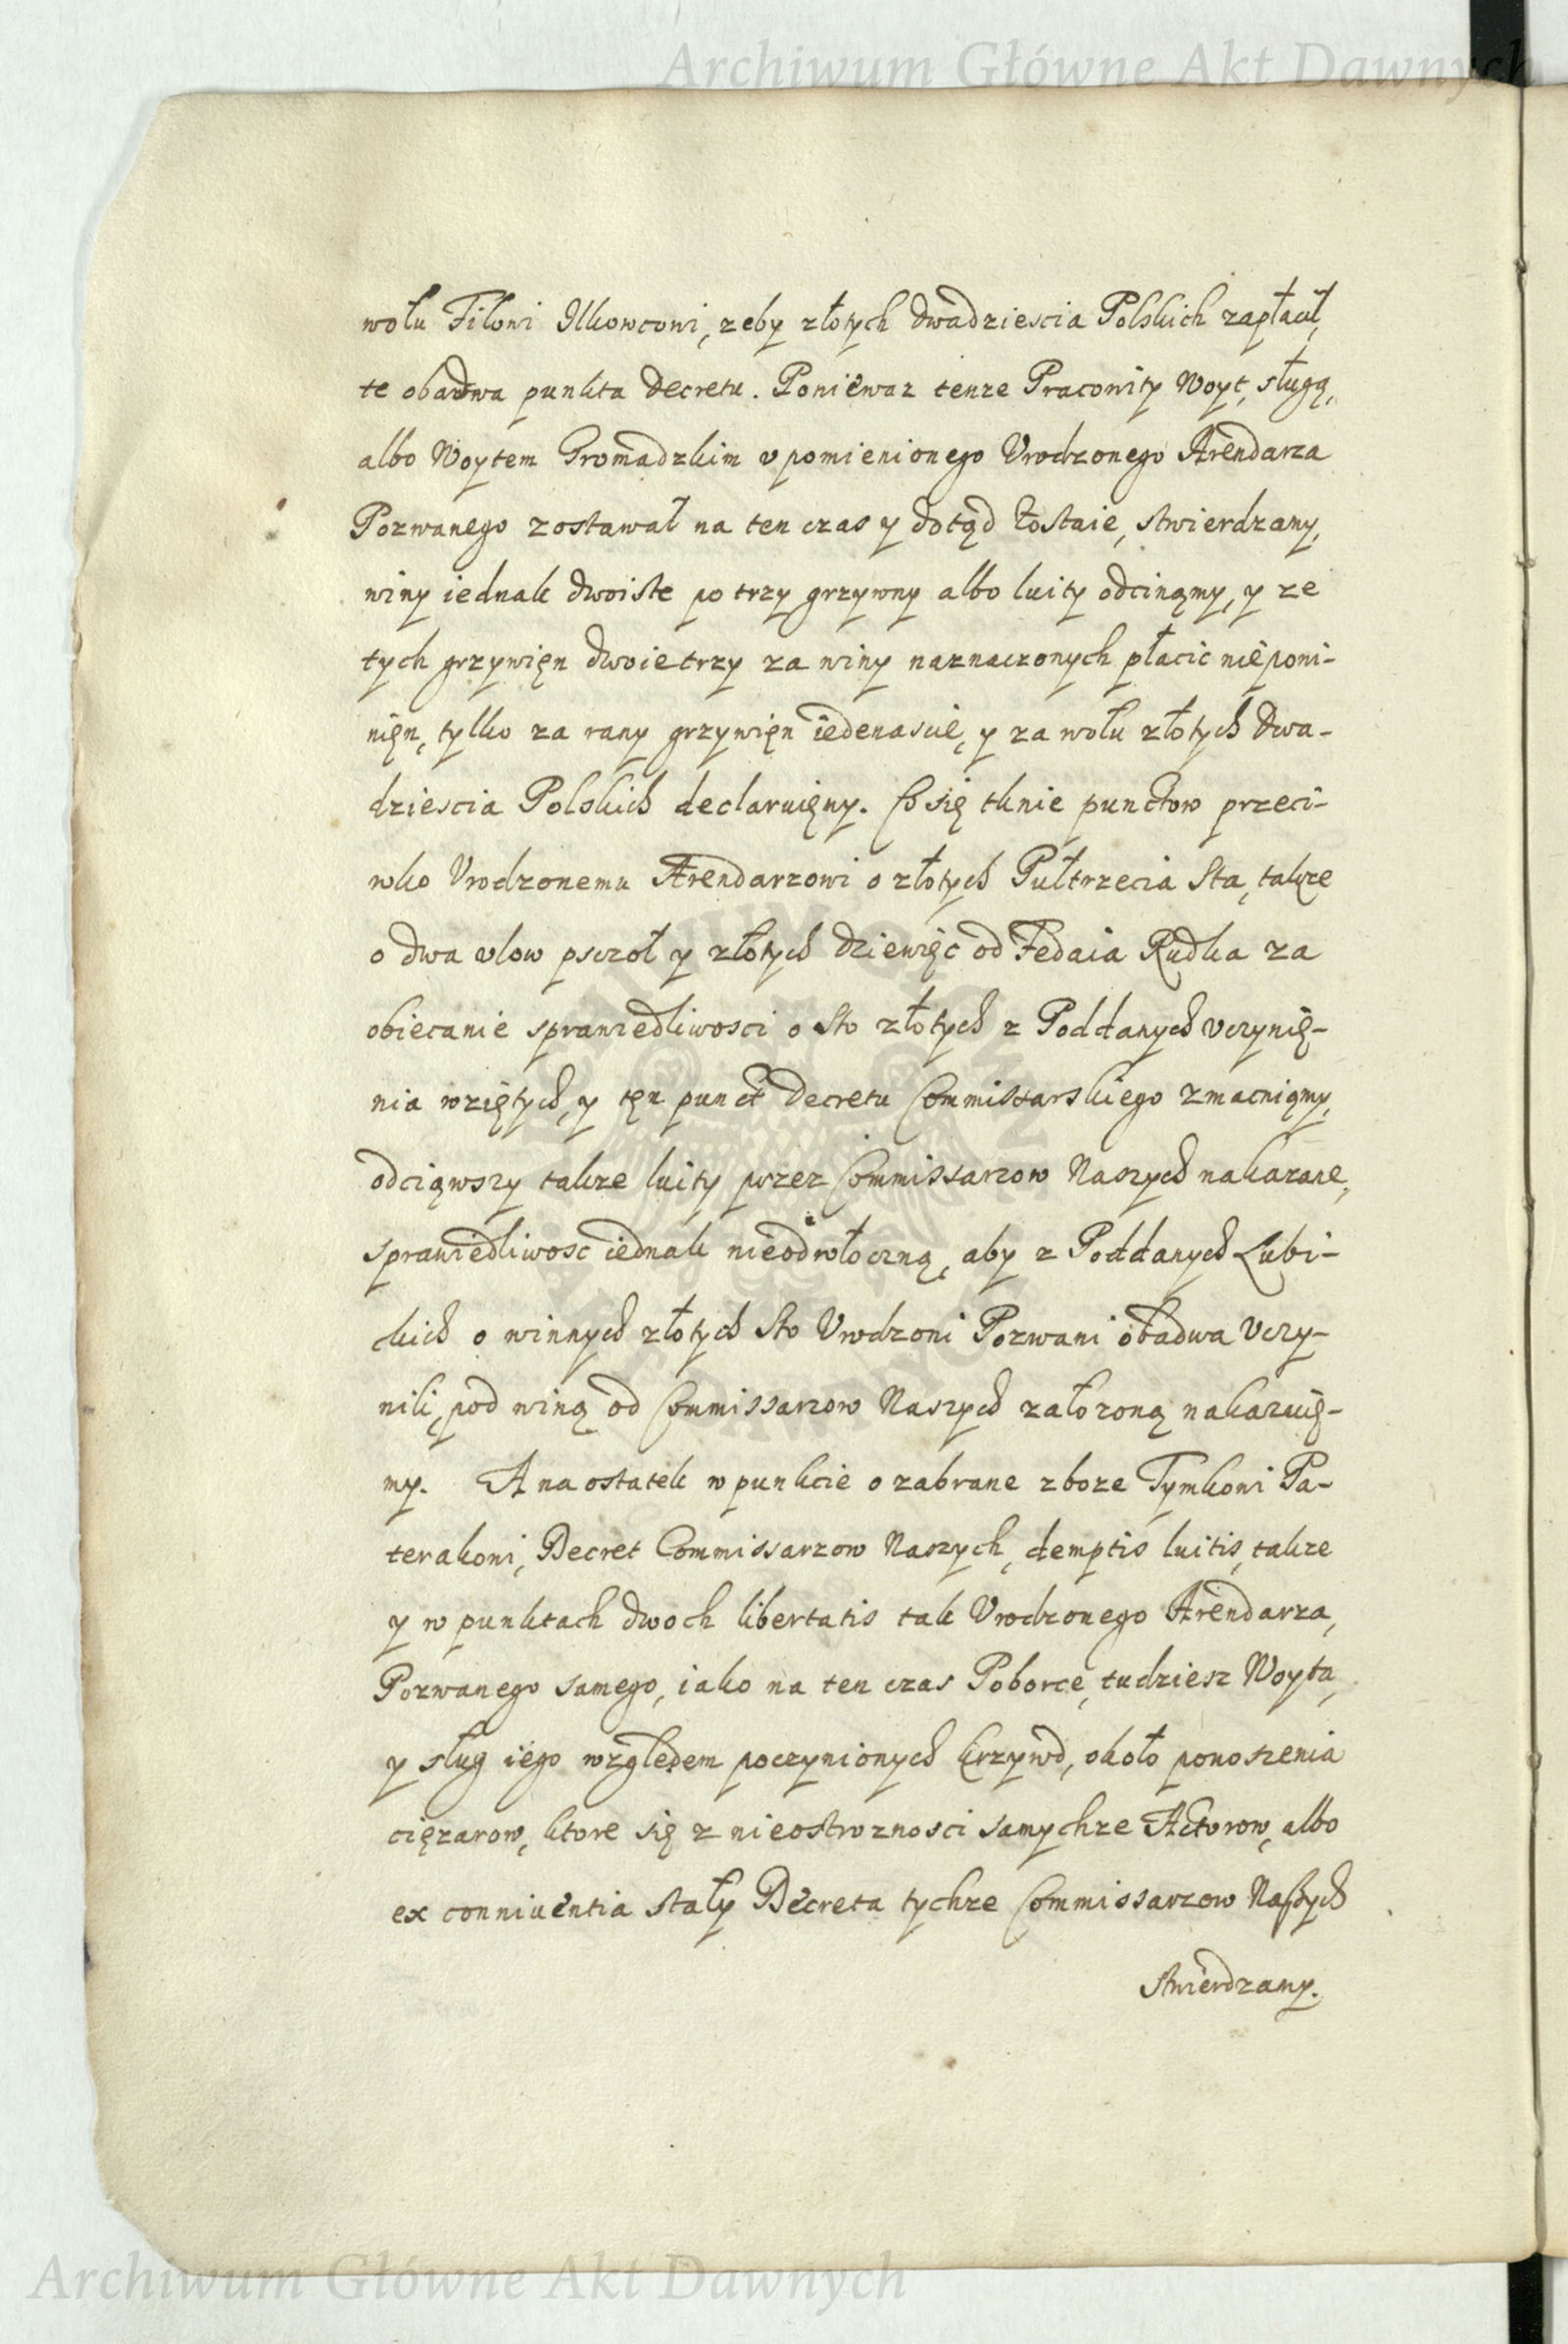 Archiwum Główne Akt Dawnych
wołu Filowi Ilkowcowi, zeby złotych dwadziescia Polskich zapłacił,
te obadwa punkta Decretu. Ponieważ tenze Pracowity Woyt, sługą,
albo Woytem Gromadzkim v pomienionego Vrodzonego Arendarza
Pozwanego zostawał na ten czas y dotąd zostaie, stwierdzamy,
winy iednak dwoiste po trzy grzywny albo luity odcinamy, y ze
tych grzywięn dwoie trzy za winy naznaczonych płacic niepowi-
nięn, tylko za rany grzywięn iedenascie, y za wołu złotych dwa-
dziescia Polskich declaruięmy. Co się tknie punctow przeci-
wko Vrodzonemu Arendarzowi o złotych Pułtrzecia Sta, takze
o dwa vlow psczoł y złotych dziewięc od Fedaia Rudka za
obiecanie sprawiedliwosci o sto złotych z Poddanych vczynię-
nia wziętych, y tęn punct Decretu Commissarskiego zmacniąmy,
odciąwszy takze luity przez Commissarzow Naszych nakazane,
sprawiedliwosc iednak nieodwłoczną, aby z Poddanych Lubi-
ckich o winnych złotych sto Vrodzoni Pozwani obadwa vczy-
nili, pod winą od Commissarzow Naszych załozoną nakazuię-
my. A na ostatek w punkcie o zabrane zboze Tymkowi Pa-
terakowi, Decret Commissarzow Naszych, demptis luitis, takze
y w punktach dwoch libertatis tak Vrodzonego Arendarza,
Pozwanego samego, iako na ten czas Poborcę, tudziesz Woyta,
y sług iego względem poczynionych krzywd, około ponoszenia
cięzarow, ktore się z nieostroznosci samychze Actorow, albo
ex conniuentia stały Decreta tychze Commissarzow Naszych
stwierdzamy.
Archiwum Główne Akt Dawnych